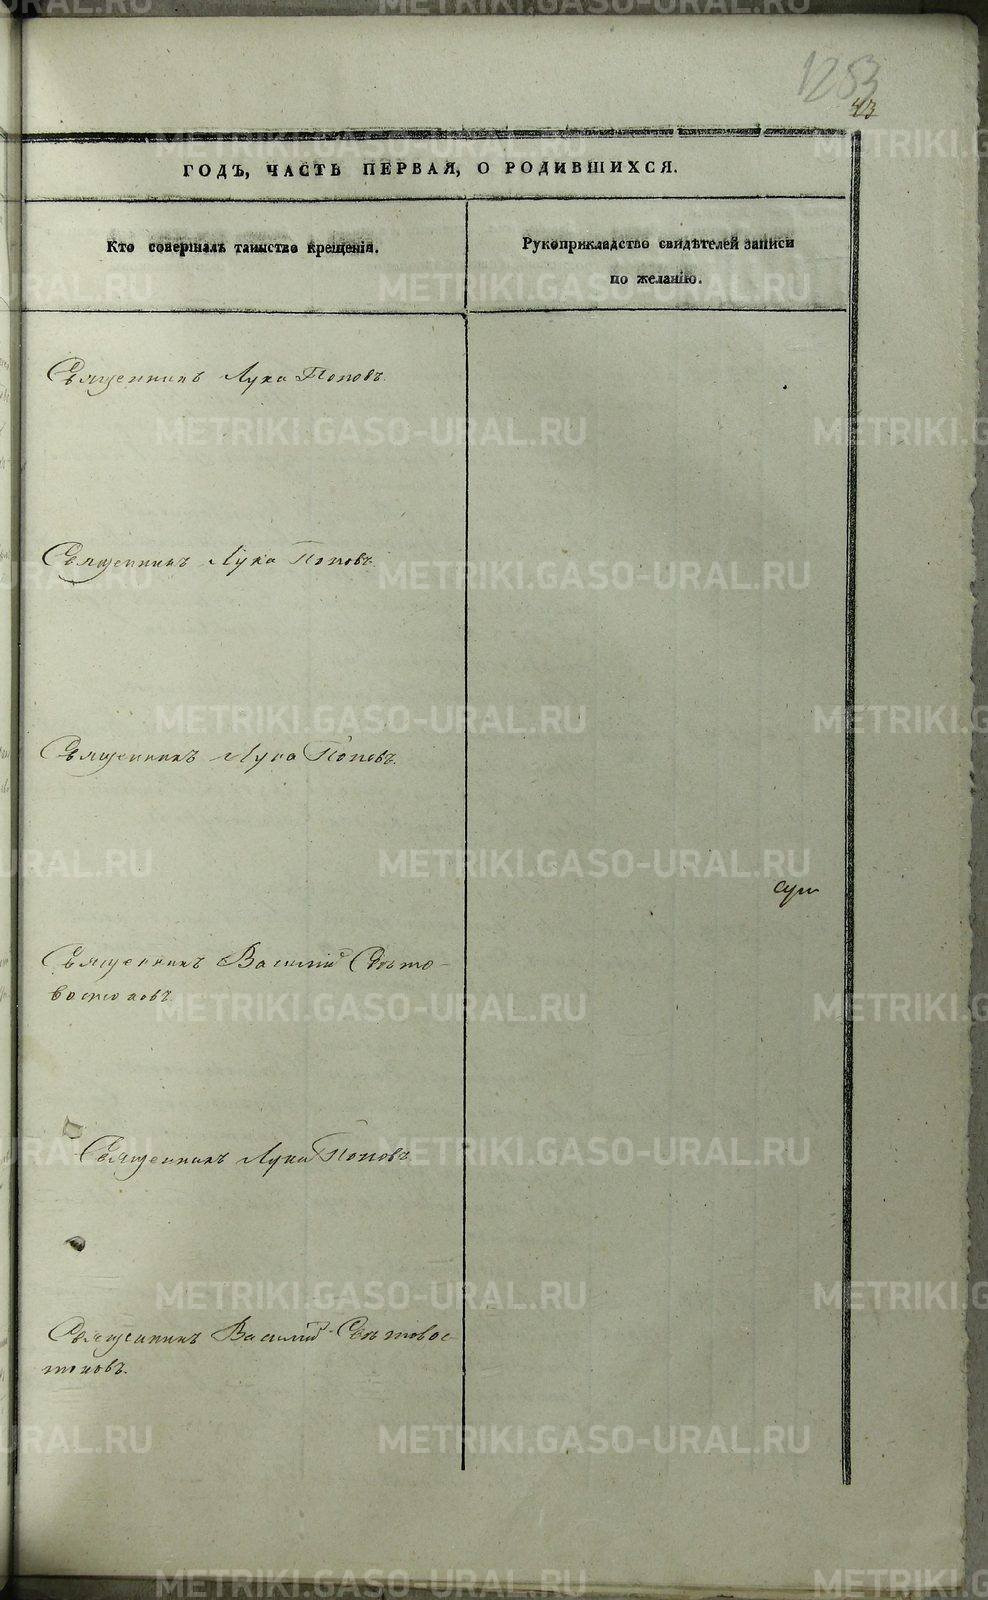 1253
43
ГОДЪ, ЧАСТЬ ПЕРВАЯ, О РОДИВШИХСЯ.
Кто совершалъ таинство крещенія.
Рукоприкладство свидѣтелей записи
по желанію.
Священникъ Лука Поповъ.
Священникъ Лука Поповъ.
Священникъ Лука Поповъ.
Священникъ Василій Свѣто-
востоковъ.
Священникъ Лука Поповъ
Священникъ Василій Свѣтовос
токовъ.
METRIKI.GASO-URAL.RU